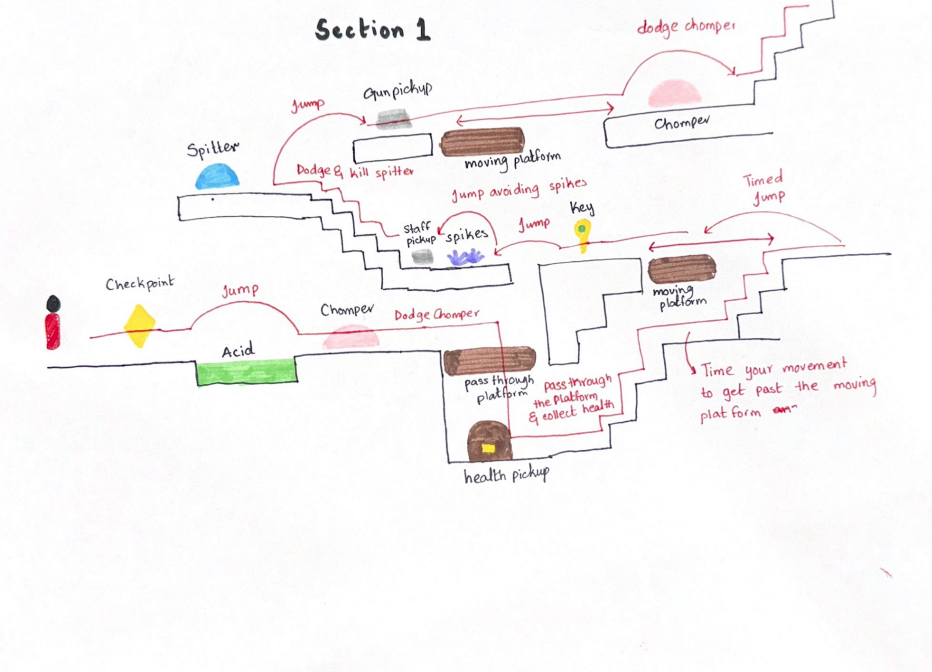 Section 1
dodge chomper
Gun pickup
Jump
Chomper
moving platform
Spitter
Dodge & kill spitter
Jump avoiding spikes
Timed
Jump
Key
Staff
pickup
spikes
Jump
moving
platform
Checkpoint
Jump
Chomper
Dodge Chomper
Acid
pass through
platform
pass through
the platform
& collect health
Time your movement
to get past the moving
platform
health pickup